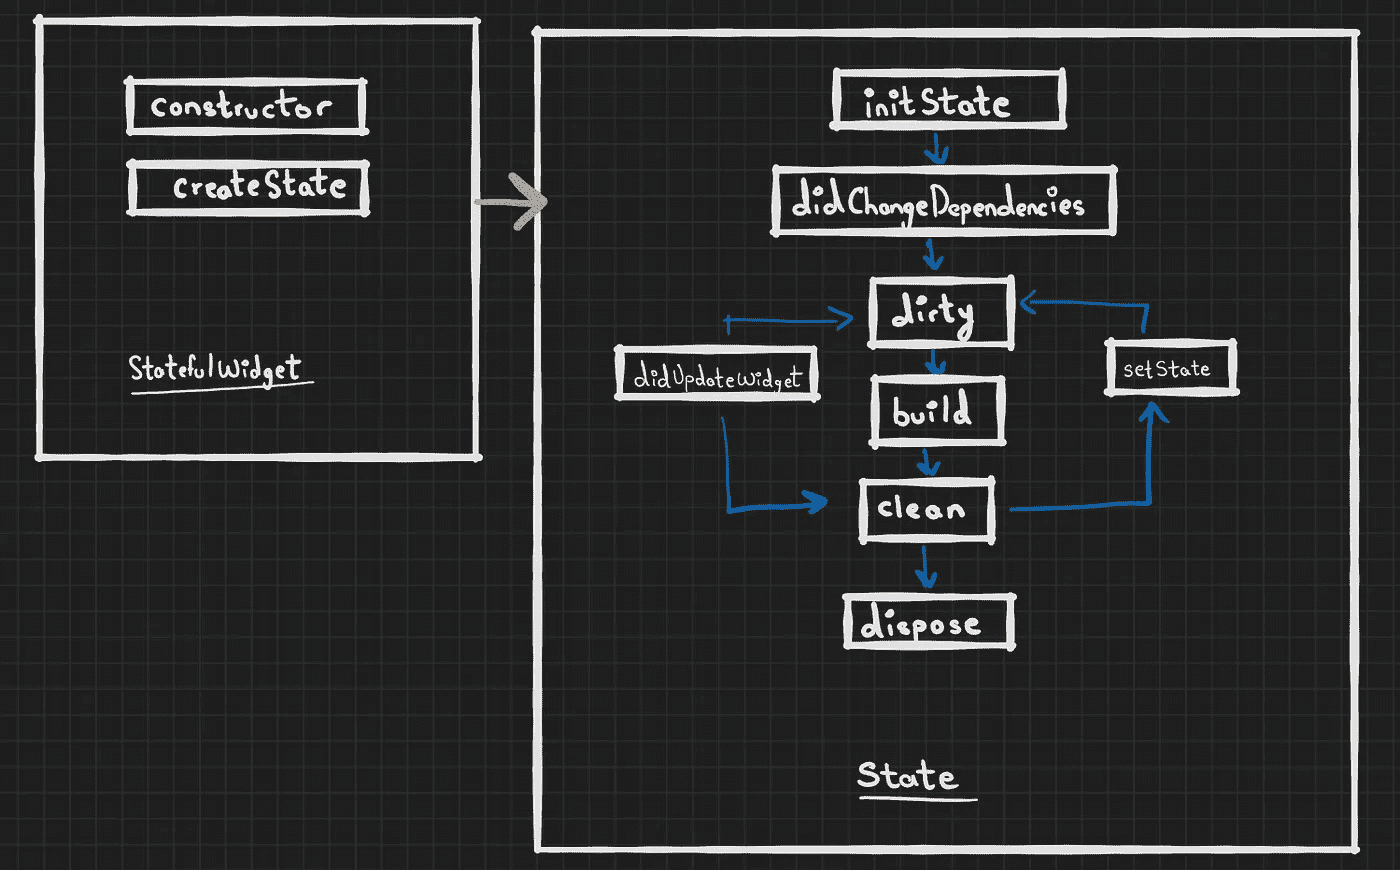 constructor
createState
StatefulWidget
initState
didChangeDependencies
dirty
didUpdateWidget
setState
build
clean
dispose
State